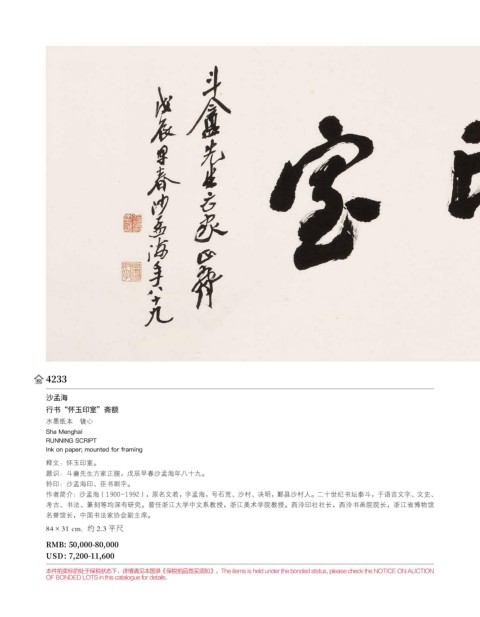 室
斗盦先生方家正腕
戊辰早春沙孟海年八十九
4233
沙孟海
行书“怀玉印室”斋额
水墨纸本 镜心
Sha Menghai
RUNNING SCRIPT
Ink on paper; mounted for framing
释文：怀玉印室。
题识：斗盦先生方家正腕，戊辰早春沙孟海年八十九。
钤印：沙孟海印、臣书刷字。
作者简介：沙孟海（1900-1992），原名文若，字孟海，号石荒、沙村、决明，鄞县沙村人。二十世纪书坛泰斗，于语言文字、文史、
考古、书法、篆刻等均深有研究。曾任浙江大学中文系教授，浙江美术学院教授，西泠印社社长，西泠书画院院长，浙江省博物馆
名誉馆长，中国书法家协会副主席。
84 × 31 cm. 约 2.3 平尺
RMB: 50,000-80,000
USD: 7,200-11,600
本件拍卖标的处于保税状态下，详情请见本图录《保税拍品竞买须知》。The items is held under the bonded status, please check the NOTICE ON AUCTION
OF BONDED LOTS in this catalogue for details.